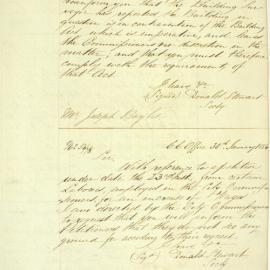 inform you that the Building Sur-
veyor has reported the Building in
question is in contravention of the Building
Act which is imperative, and leaves
the Commissioners no discretion in the
matter, and that you must therefore
comply with the requirements of
that Act.
I have &c
(Signed) Donald Stewart
Secty
Mr Joseph
C C Office 30th January
Sir
With reference to a petition
under date the 23rd Inst, from certain
Laborers employed in the City Commission
for an increase of Wages
I am directed by the City Commissioners
to request that you will inform the
Petitioners that they do not see any
ground for acceding to their request
I have &c
(Sgd) Donald Stewart
Secty